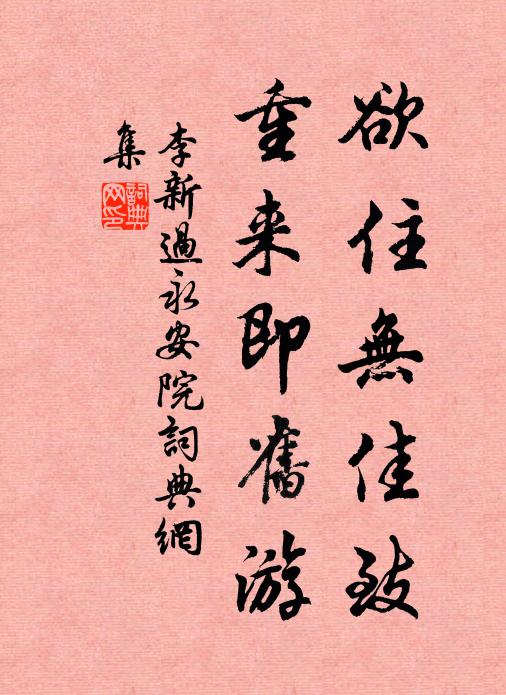 欲住無佳致
重来即舊游
李新過永安院詞典網
集
詞典网印